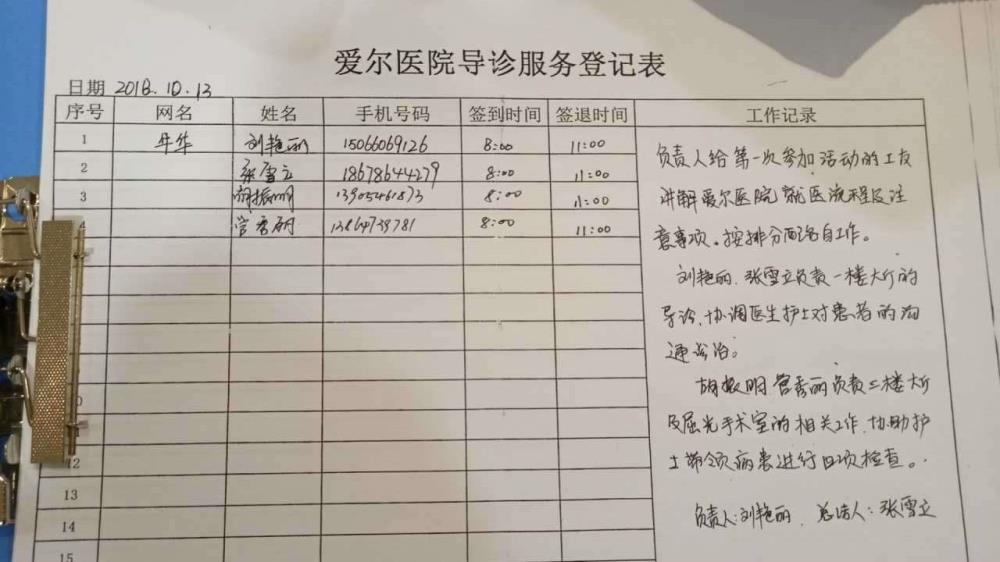 爱尔医院导诊服务登记表
日期 2018.10.13
序号 网名 姓名 手机号码 签到时间 签退时间 工作记录
1 年华 刘艳丽 15066069126 8:00 11:00
2 张雪立 18678644279 8:00 11:00
3 胡振明 13905461873 8:00 11:00
4 管秀丽 13864739781 8:00 11:00
12
13
14
15
负责人给第一次参加活动的工友
讲解爱尔医院就医流程及注
意事项。按排分配各自工作。
刘艳丽、张雪立负责一楼大厅的
导诊,协调医生护士对患者的沟
通诊治。
胡振明、管秀丽负责二楼大厅
及屈光手术室的相关工作,协助护
士带领病患进行四项检查。
负责人:刘艳丽 总结人:张雪立